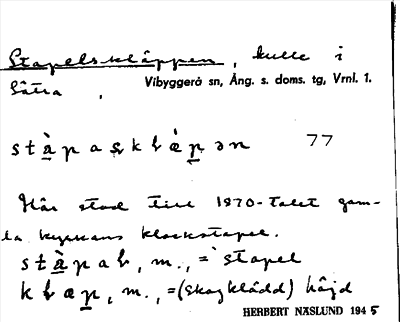 Stapelskläppen, kulle i
Sätra.
Vibyggerå sn, Ång. s. doms. tg, Vrnl. 1.
77
Här stod till 1870-talet gam-
la kyrkans klockstapel.
m., = stapel
m., =(skogklädd) höjd
HERBERT NÄSLUND 1945